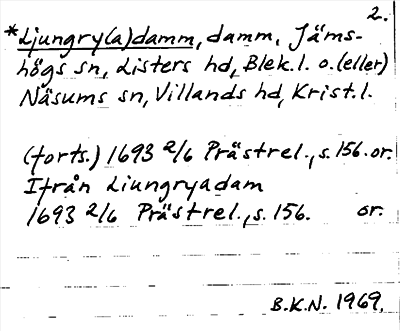 2.
*Ljungry(a)damm, damm, Jäms-
högs sn, Listers hd, Blek.l. o.(eller)
Näsums sn, Villands hd, Krist.l.
(forts.) 1693 2/6 Prästrel., s.156. or.
Ifrån Liungryadam
1693 2/6 Prästrel., s.156. or.
B.K.N. 1969.